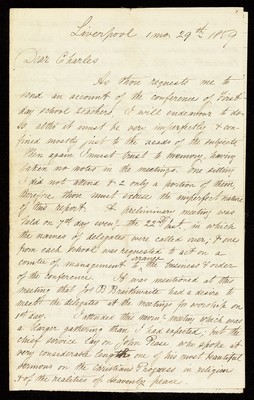 Liverpool 1 mo 29th 1859
Dear Charles
As thou requests me to
send an account of the conference of First
day school teachers, I will endeavour to do
so altho' it must be very imperfectly & con-
fined mostly to the heads of the subjects.
Then again I must trust to memory, having
taken no notes in the meetings. One sitting
I did not attend & 2 only a portion of them,
therefore thou must excuse the imperfect nature
of this report. A preliminary meeting was
held on 7th day eveng the 22nd inst, in which
the names of delegates were called over; & one
from each School was requested to act on a
comtee of management to arrange the business & order
of the conference. It was mentioned at this
meeting that Jos B Braithwaite had a desire to
meet the delegates at the meetings for worship on
1st day. I attended this morng meeting which was
a larger gathering than I had expected; but the
chief service lay on John Pease who spoke at
very considerable length one of his most beautiful
sermons on the Christians Progress in religion
& of the realities of heavenly peace.